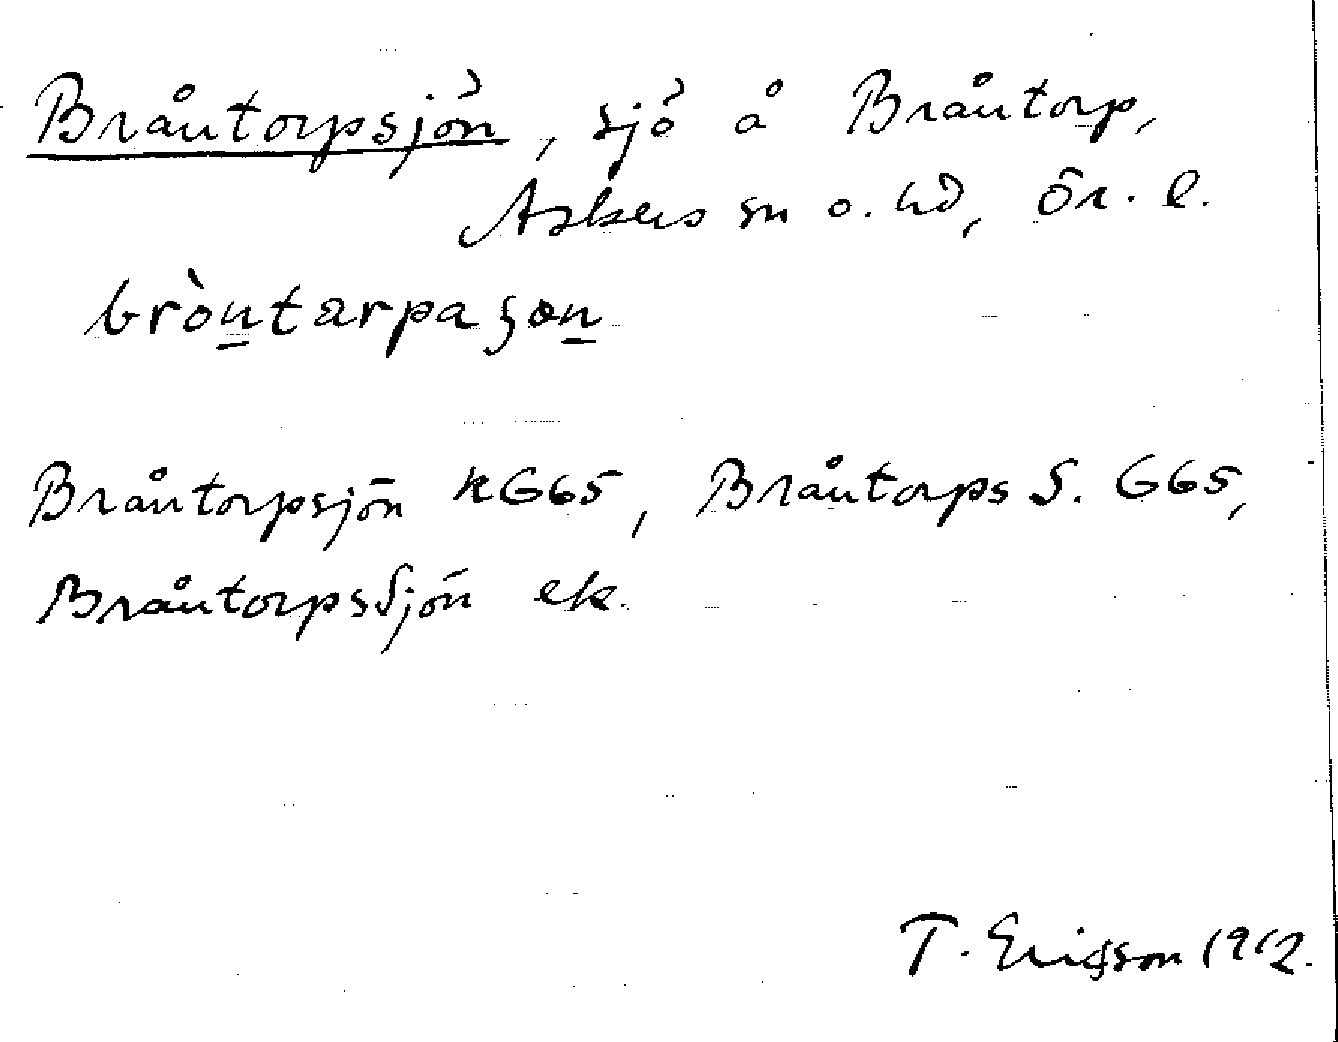 Bråtorpsjön, sjö å Bråtorp,
Askers sn o. hd, Ör. l.
bròntarpaȿøn
Bråntorpsjön kG65, Bråntorps S. G65,
BråntorpsSjön ek.
T. Ericsson 1912.